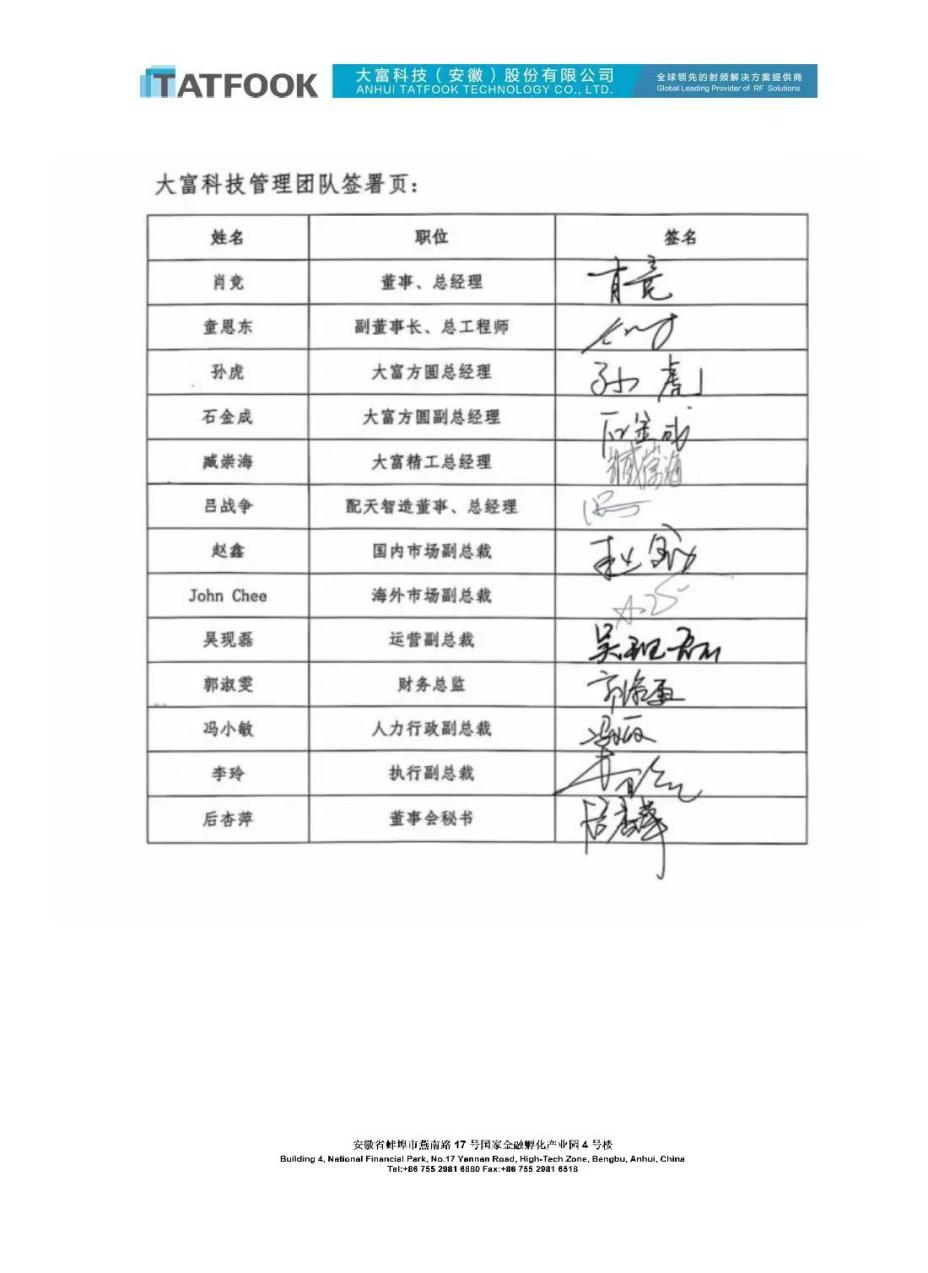 TATFOOK
大富科技（安徽）股份有限公司
ANHUI TATFOOK TECHNOLOGY CO., LTD.
全球领先的射频解决方案提供商
Global Leading Provider of RF Solutions
大富科技管理团队签署页：
姓名 职位 签名
肖竞 董事、总经理 肖竞
童恩东 副董事长、总工程师
孙虎 大富方圆总经理 孙虎
石金成 大富方圆副总经理 石金成
臧崇海 大富精工总经理 臧崇海
吕战争 配天智造董事、总经理
赵鑫 国内市场副总裁 赵鑫
John Chee 海外市场副总裁
吴现磊 运营副总裁 吴现磊
郭淑雯 财务总监 郭淑雯
冯小敏 人力行政副总裁
李玲 执行副总裁
后杏萍 董事会秘书 后杏萍
安徽省蚌埠市燕南路 17 号国家金融孵化产业园 4 号楼
Building 4, National Financial Park, No.17 Yannan Road, High-Tech Zone, Bengbu, Anhui, China
Tel:+86 755 2981 6880 Fax:+86 755 2981 6518